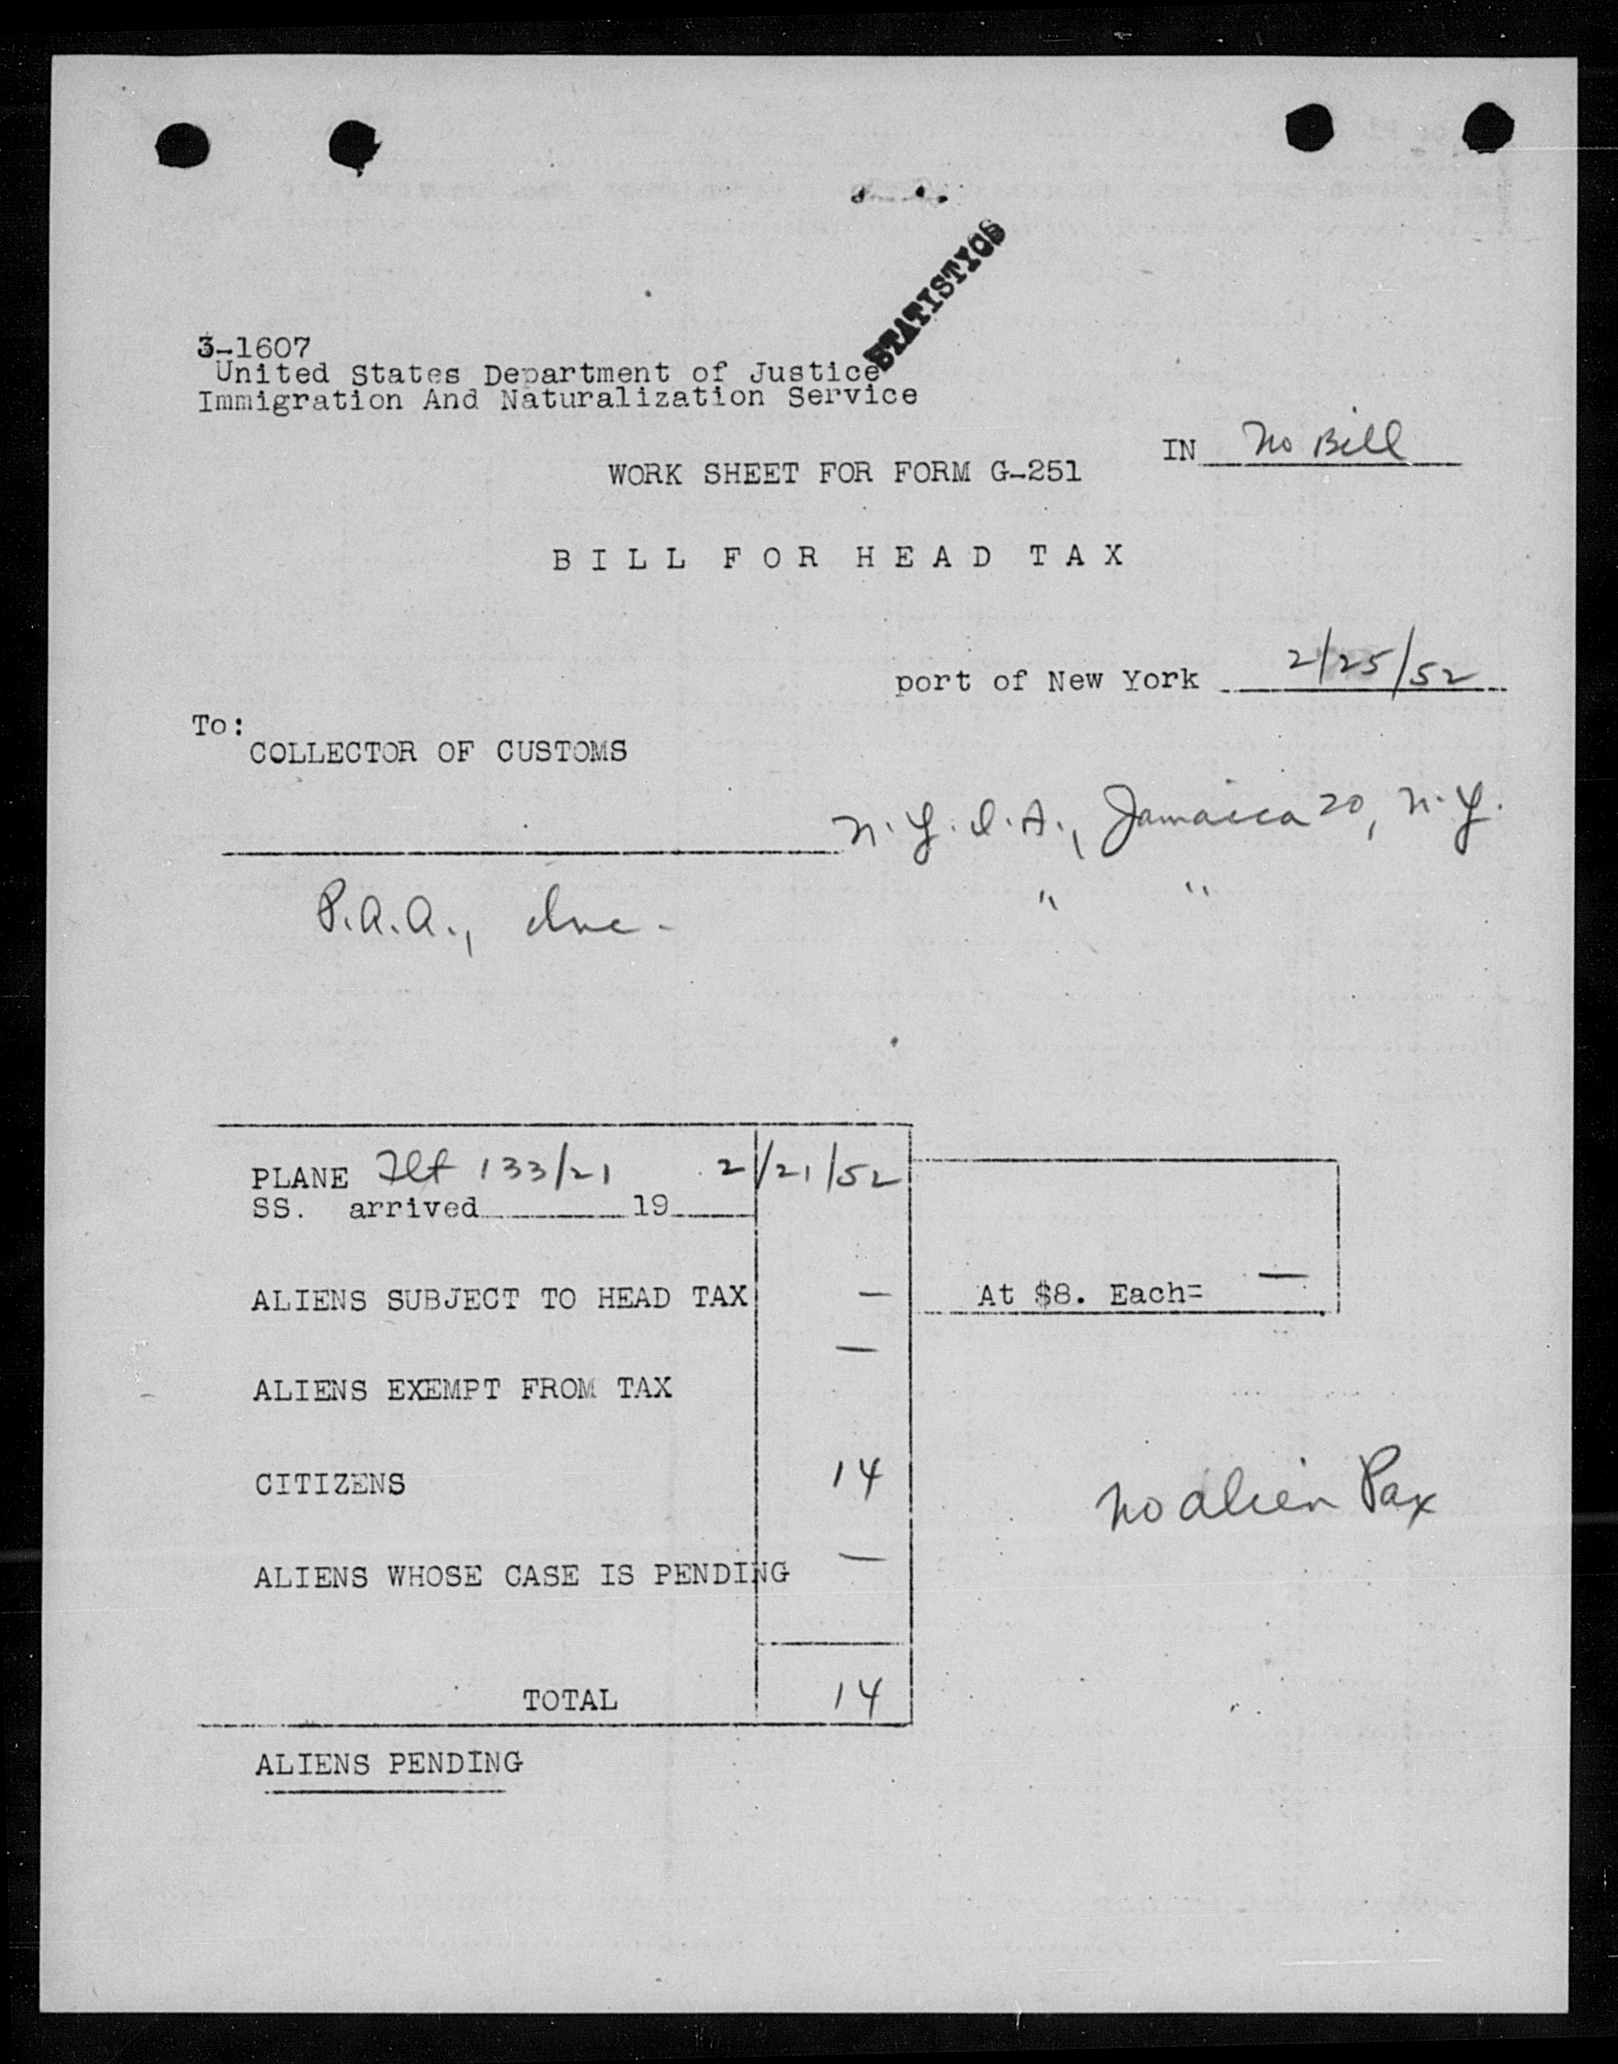 STATISTICS
3-1607
United States Department of Justice
Immigration And Naturalization Service
IN No Bill
WORK SHEET FOR FORM G-251
BILL FOR HEAD TAX
port of New York 2/25/52
To:
COLLECTOR OF CUSTOMS
N.Y.I.A., Jamaica 20, N.Y.
P.A.A., Inc. " "
PLANE Flt 133/21 2/21/52
SS. arrived 19
ALIENS SUBJECT TO HEAD TAX — At $8. Each= —
—
ALIENS EXEMPT FROM TAX
CITIZENS 14
No alien Pax
ALIENS WHOSE CASE IS PENDING —
TOTAL 14
ALIENS PENDING